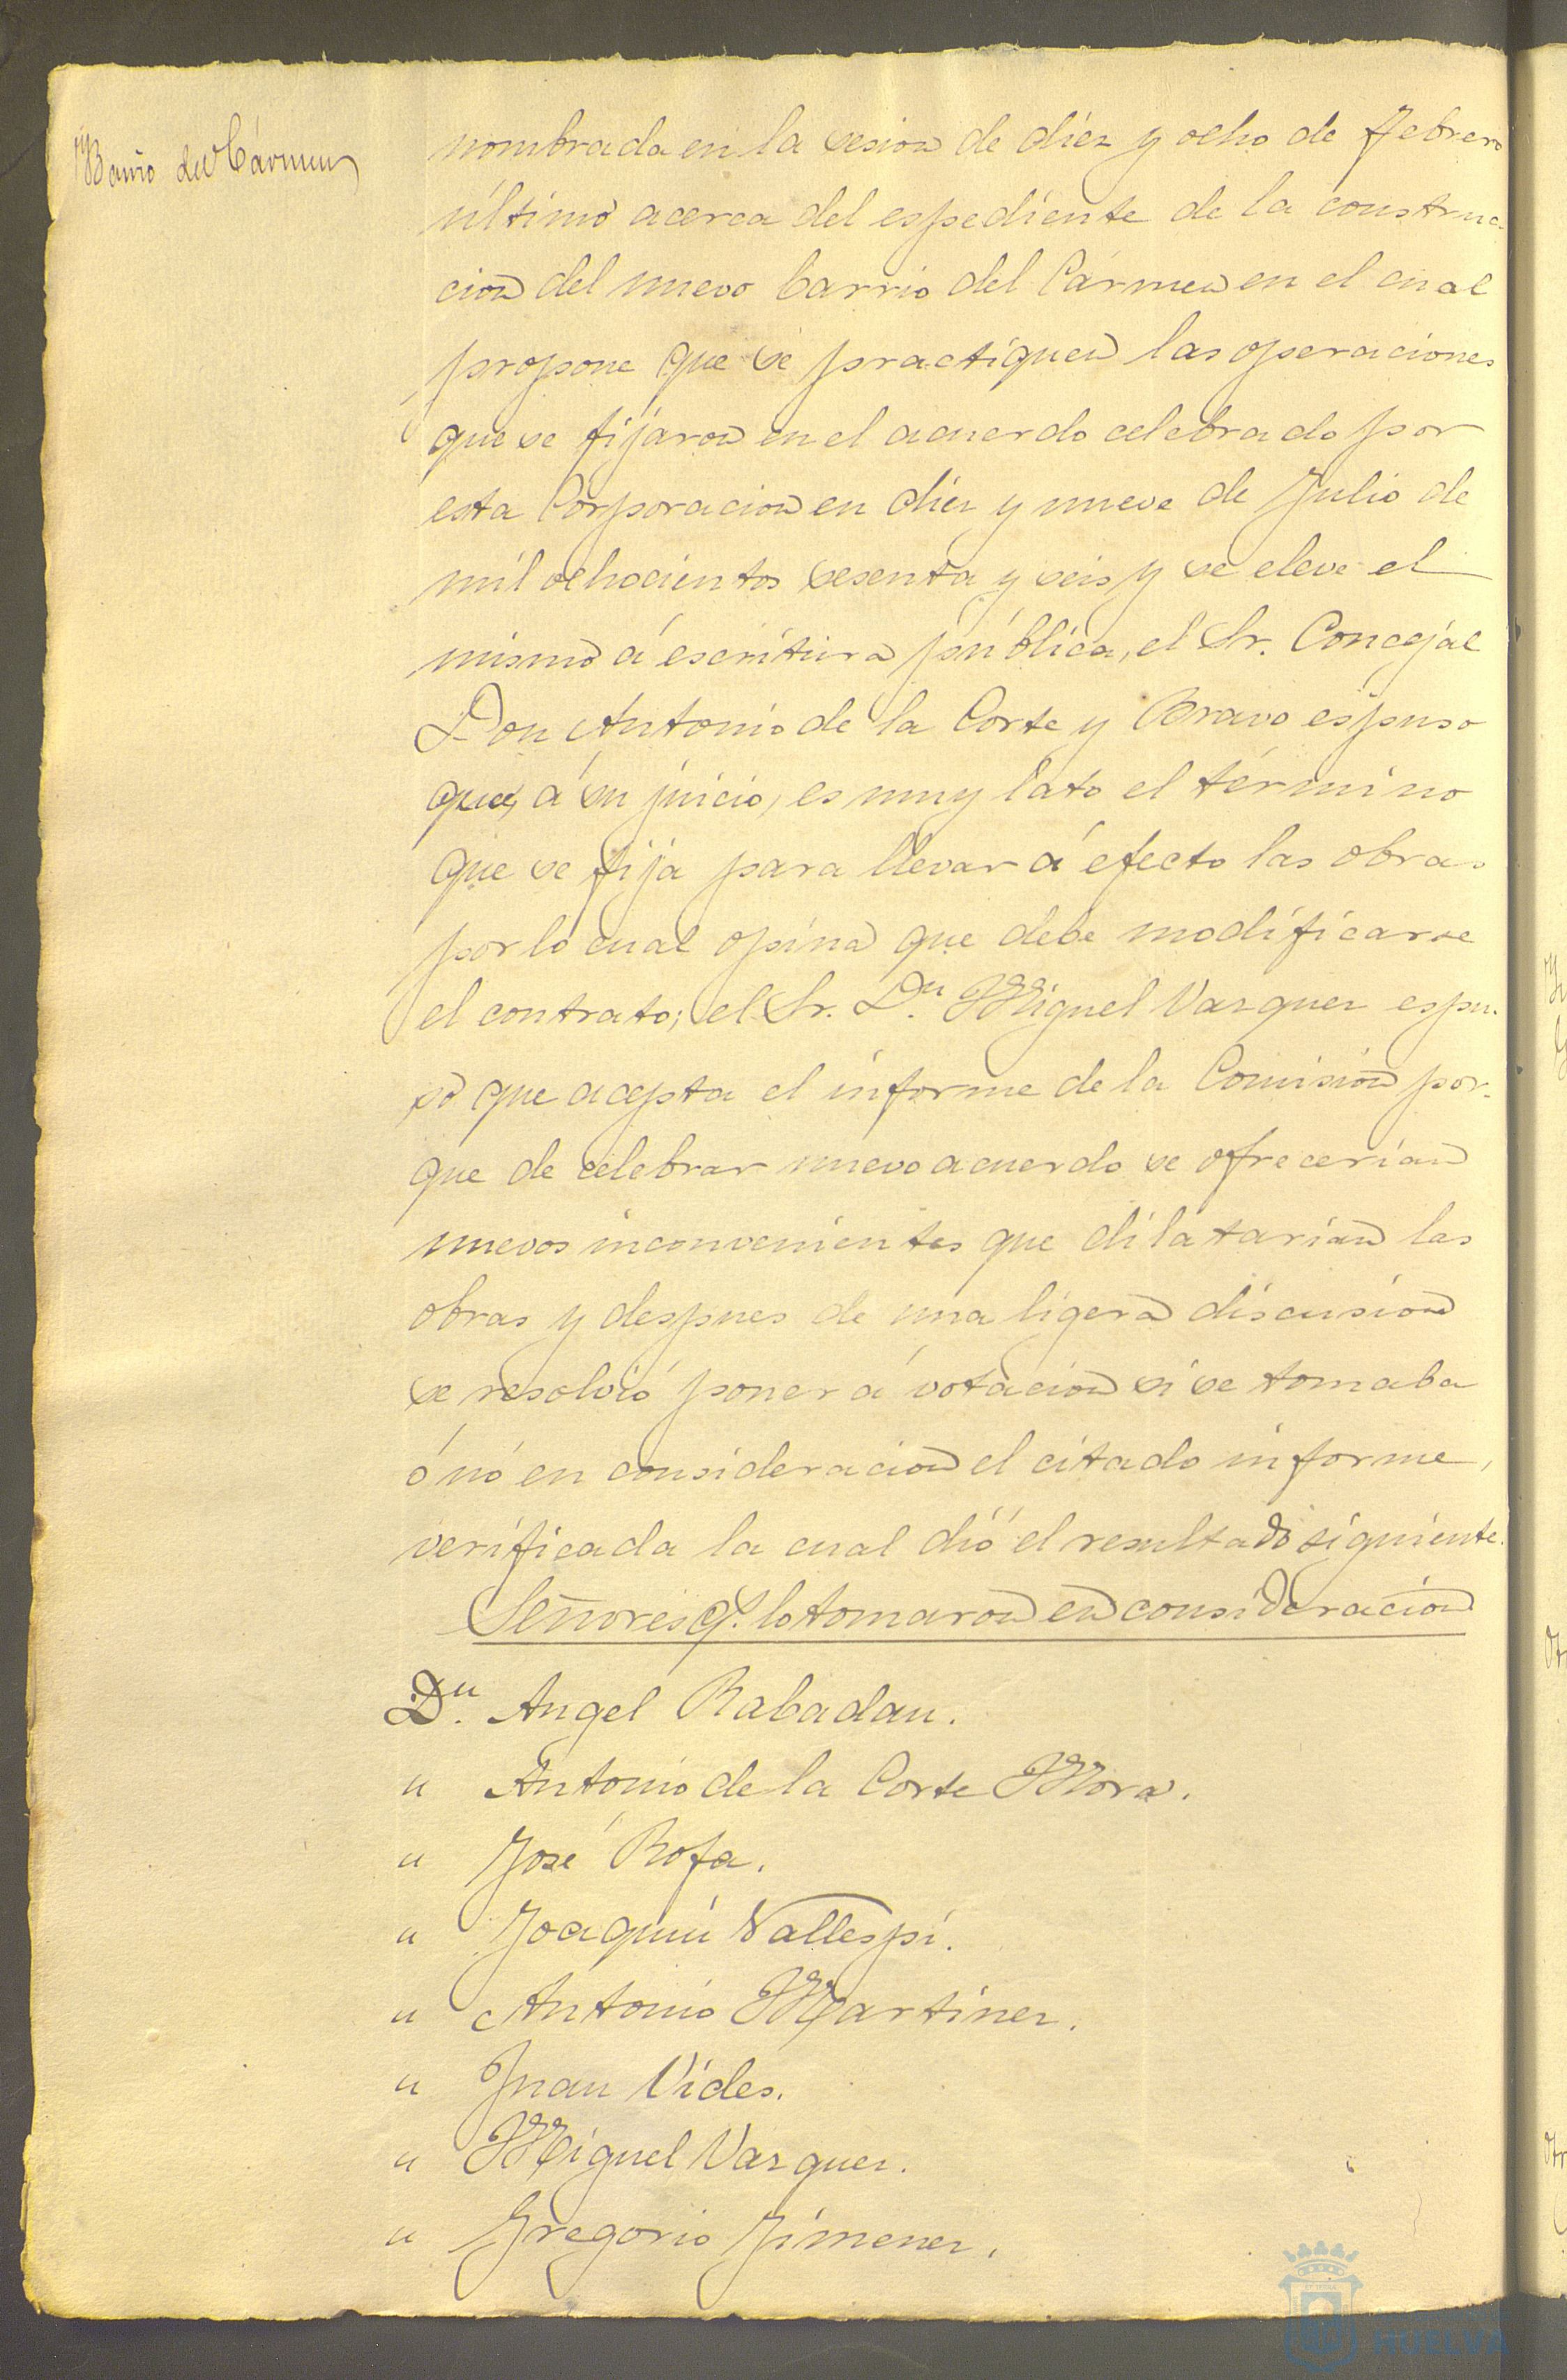 Barrio del Cármen
nombrada en la sesion de diez y ocho de Febrero
último acerca del espediente de la construc-
cion del nuevo barrio del Cármen en el cual
propone que se practiquen las operaciones
que se fijaron en el acuerdo celebrado por
esta Corporacion en diez y nueve de Julio de
mil ochocientos sesenta y seis y se eleve el
mismo á escritura pública, el Sr. Concejal
Don Antonio de la Corte y Bravo espuso
que, á su juicio, es muy lato el término
que se fija para llevar á efecto las obras
por lo cual opina que debe modificarse
el contrato; el Sr. Dn. Miguel Vazquez espu-
so que acepta el informe de la Comision por-
que de celebrar nuevo acuerdo se ofrecerian
nuevos inconvenientes que dilatarian las
obras y despues de una ligera discusion
se resolvió poner á votacion si se tomaba
ó nó en consideracion el citado informe,
verificada la cual dió el resultado siguiente.
Señores q.e lo tomaron en consideracion
Dn. Angel Rabadan.
" Antonio de la Corte Mora.
" José Rofa.
" Joaquin Vallespí.
" Antonio Martinez.
" Juan Vides.
" Miguel Vazquez.
" Gregorio Jimenez.
HUELVA